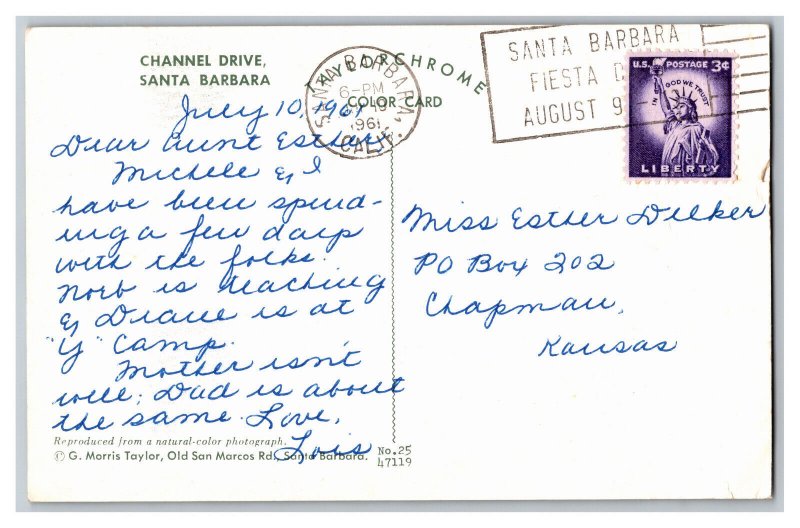 CHANNEL DRIVE,
SANTA BARBARA
TAYLORCHROME
COLOR CARD
SANTA BARBARA, CALIF.
6-PM
1961
SANTA BARBARA
FIESTA
AUGUST 9
U.S. POSTAGE 3¢
IN GOD WE TRUST
LIBERTY
July 10, 1961
Dear Aunt Esther,
Michele & I
have been spend-
ing a few days
with the folks.
Norb is teaching
& Diane is at
"Y" Camp.
Mother isn't
well; Dad is about
the same. Love,
Lois
Miss Esther Dilker
PO Box 202
Chapman,
Kansas
Reproduced from a natural-color photograph.
© G. Morris Taylor, Old San Marcos Rd., Santa Barbara.
No. 25
47119